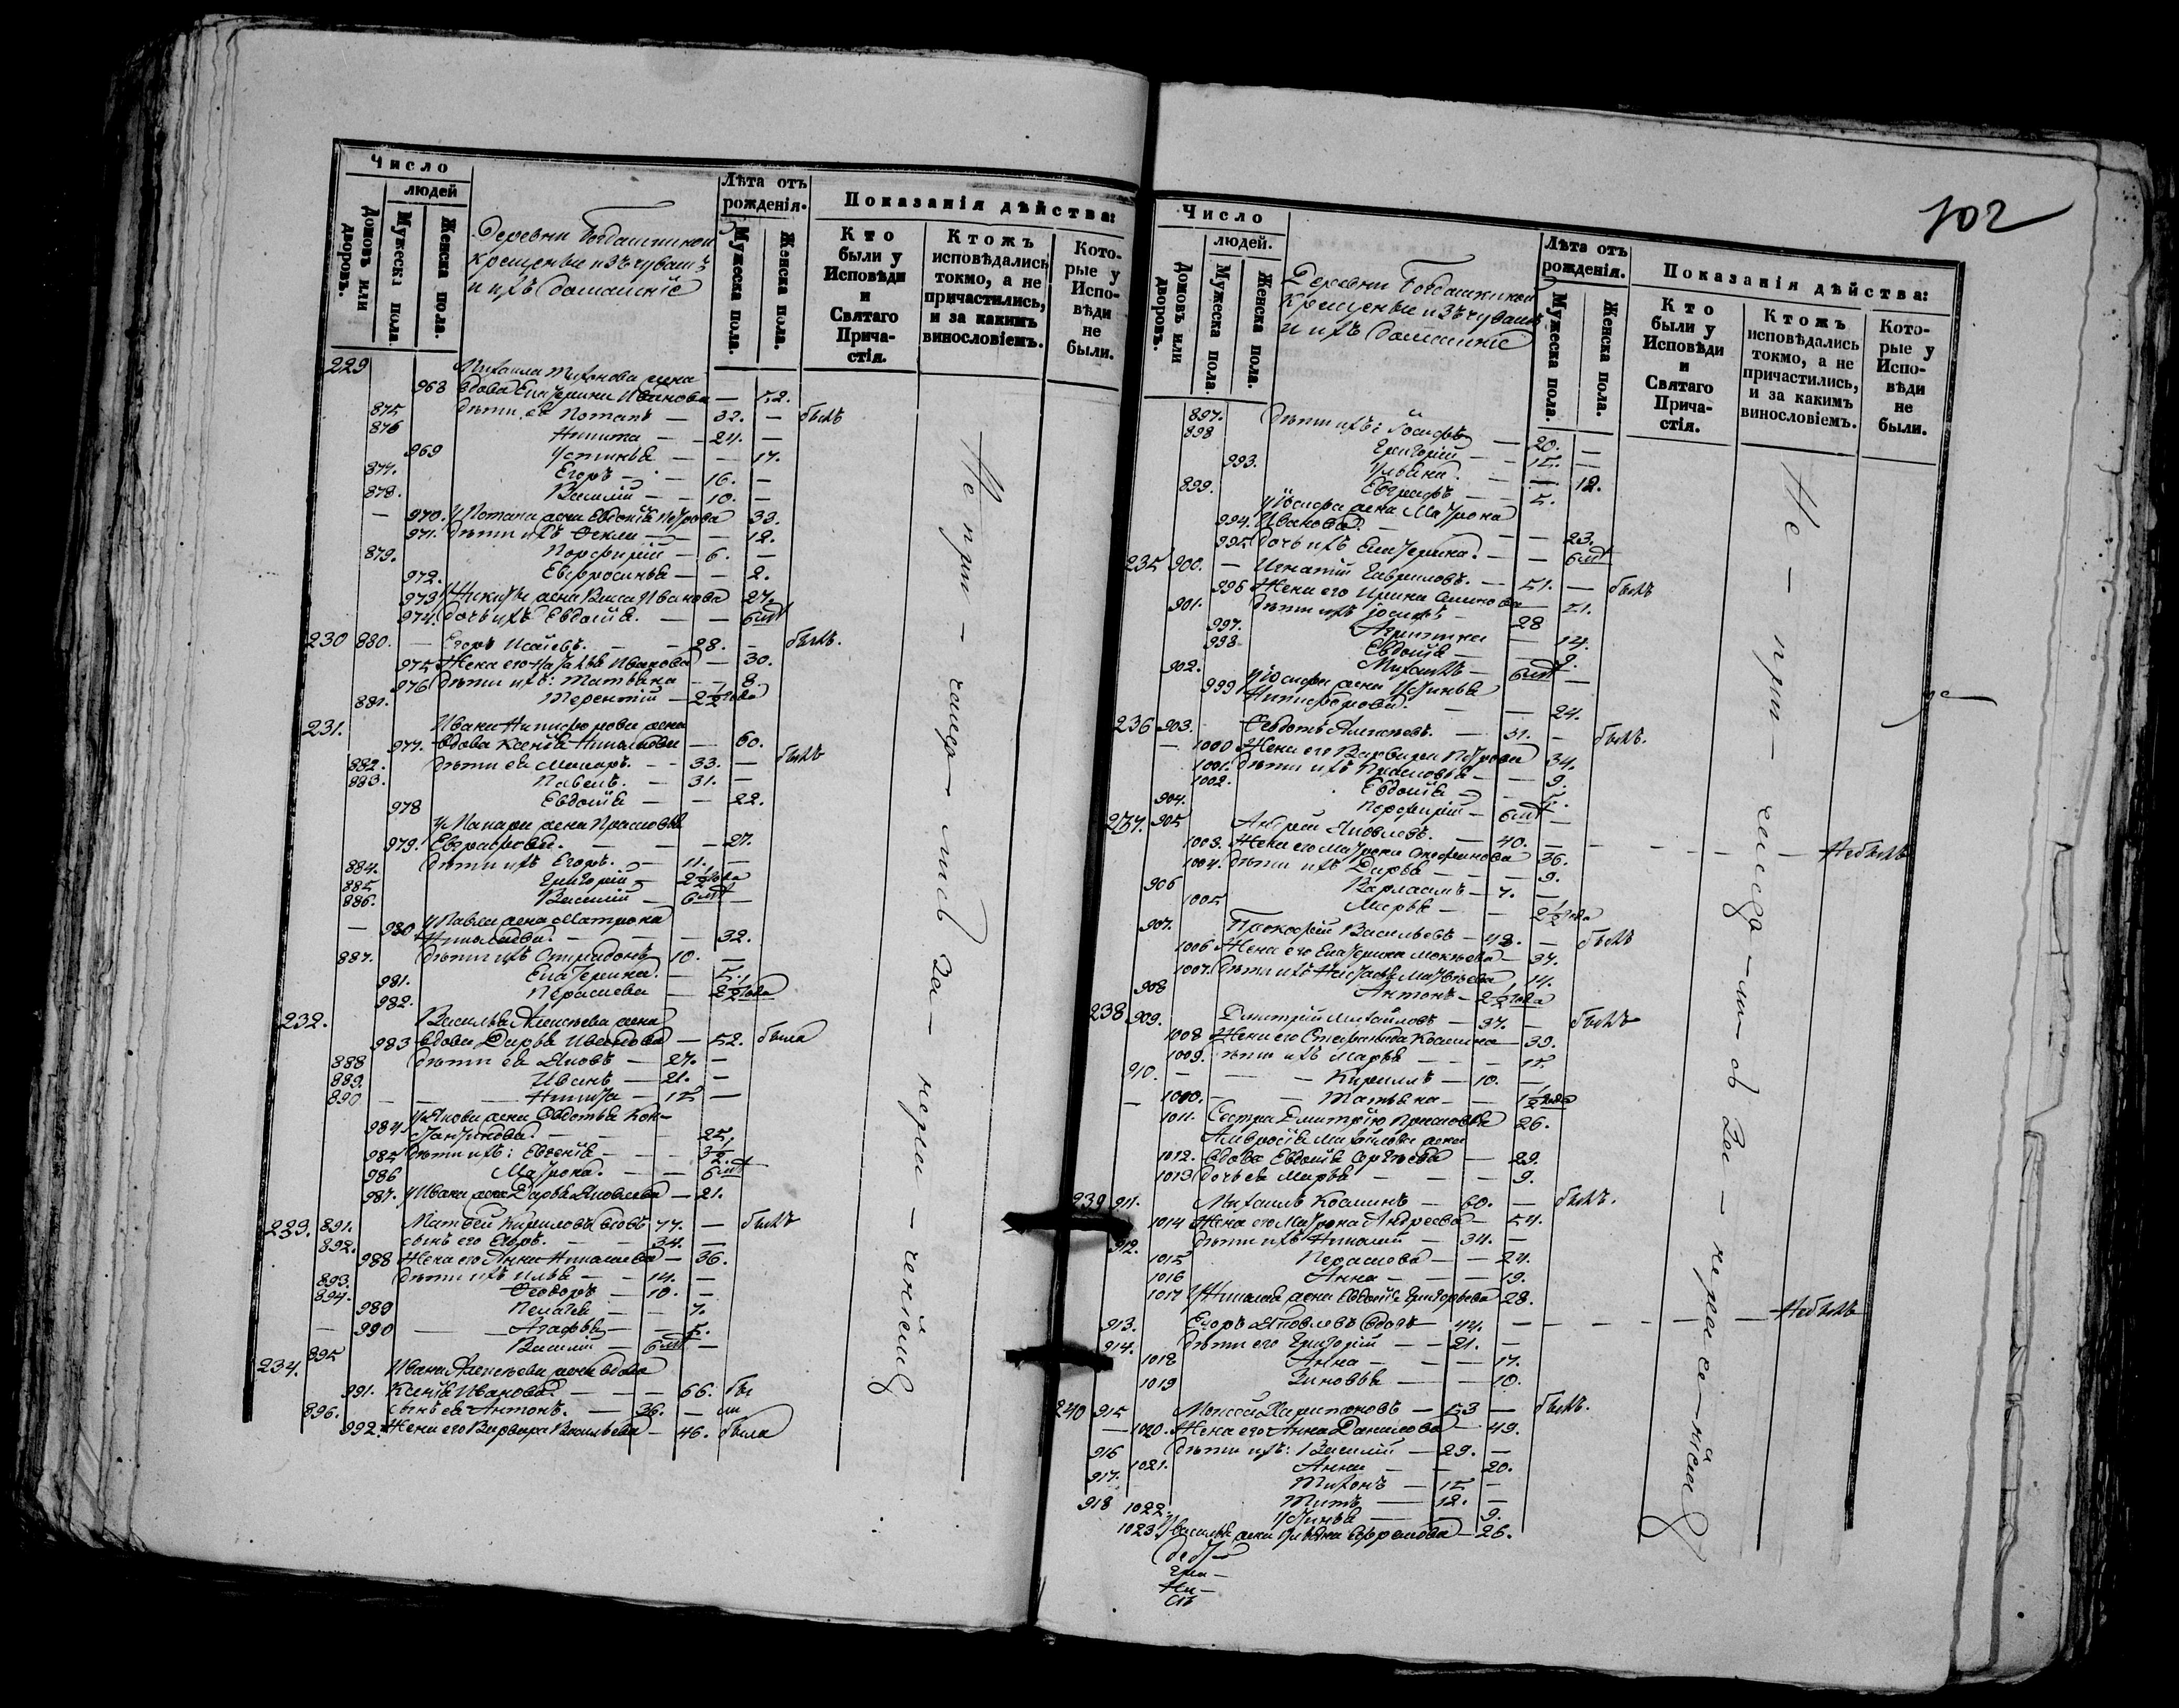 Число
людей
Домовъ или дворовъ.
Мужеска пола.
Женска пола.
Деревни Богдашкиной
крещеные изъ чувашъ
и ихъ домашніе
Лѣта отъ рожденія.
Мужеска пола.
Женска пола.
Показанія дѣйства:
Кто были у Исповѣди и Святаго Причастія.
Ктожъ исповѣдались токмо, а не причастились, и за какимъ винословіемъ.
Которые у Исповѣди не были.
229 Михаила Тихонова жена
968 вдова Екатерина Иванова — 52.
875 дѣти ея Потапъ — 32. — былъ
876 Никита — 24. —
969 Устинья — — 17.
877. Егоръ — 16. —
878. Василій — 10. —
— 970. У Потапа жена Евдокія Петрова 33.
971. дѣти ихъ Фекла — — 12.
879. Порфирій — 6. —
972. Евфросинья — — 2.
973 У Никиты жена Васса Иванова 27.
974. дочь ихъ Евдокія. — — 6 мѣ
230 880. — Егоръ Исаевъ. — 28. — былъ.
975 Жена его Наталья Иванова — 30.
976 дѣти ихъ: Татьяна — — 8.
881. Терентій — 2½ года
231. Ивана Никифорова жена
977. вдова Ксенія Николаева — 60.
882. дѣти ея Макаръ. — 33. — былъ
883. Павелъ. — 31. —
978 Евдокія — — 22.
У Макара жена Прасковья
979. Евграфова. — — 27.
884. дѣти ихъ Егоръ. — 11. —
885 Григорій — 2½ года
886. Василій — 6 мѣ —
— 980 У Павла жена Матрона
Николаева. — — 32.
887. дѣти ихъ Спиридонъ 10. —
981. Екатерина. — 5.
982. Пераскева — 2½ года
232. Василья Алексѣева жена
983 вдова Дарья Иванова — 52. была
888 дѣти ея Яковъ — 27. —
889. Иванъ — 21. —
890 — — Никита — 15 —
984 У Якова жена Федотья Кон-
стантинова. — — 25,
985 дѣти ихъ: Евгенія — — 3½
986 Матрона. — — 6 мѣ
987. У Ивана жена Дарья Яковлева — 21.
233. 891. Матвей Кириловъ вдовъ 77. — былъ
892. сынъ его Егоръ. — — 34. —
988 Жена его Анна Николаева — 36.
893. дѣти ихъ Илья — — 14. —
894. Ѳеодоръ — 10. —
989 Пелагея — — 7.
— 990 — Агафья — — 5.
895 Василій — 6 мѣ —
234. Ивана Алексѣева жена вдова
991. Ксенія Иванова. — — 66. бы
896. сынъ ея Антонъ. — 36. — ли
992. Жена его Варвара Васильева — 46. была
Не при — чаща — лись за — нера —ченіемъ
102
Число
людей.
Домовъ или дворовъ.
Мужеска пола.
Женска пола.
Деревни Богдашкиной
Крещеные изъ чувашъ
и ихъ домашніе
Лѣта отъ рожденія.
Мужеска пола.
Женска пола.
Показанія дѣйства:
Кто были у Исповѣди и Святаго Причастія.
Ктожъ исповѣдались токмо, а не причастились, и за какимъ винословіемъ.
Которые у Исповѣди не были.
897. дѣти ихъ: Іосифъ — 20. —
898 Григорій — 15. —
993. Ульяна. — — 12.
899. Евграфъ — — 5.
У Іосифа жена Матрона
994. Иванова. — — 23.
995 дочь ихъ Екатерина. — — 6 мѣ
235 900. — Игнатій Гавриловъ. — 51. — былъ
996 Жена его Ирина Семенова — 51.
901. дѣти ихъ Іосифъ — 28
997. Агрипина — 14.
998. Евдокія — — 9.
902. Михаилъ — 6 мѣ —
999 У Іосифа жена Устинья
Никифорова. — — 24.
236 903. Федотъ Алексѣевъ. — 31. — былъ.
— 1000 Жена его Варвара Петрова 34.
1001. дѣти ихъ Прасковья — — 9.
1002. Евдокія — — 5.
904. Порфирій — 6 мѣ —
237. 905 Андрей Яковлевъ. — 40. — — — — — — Небылъ
1003. Жена его Матрона Степанова 36.
1004. дѣти ихъ Дарья — — 9.
906 Варлаамъ — 7. —
1005 Марья — — 2½ года
907. Прокофій Васильевъ — 43. — былъ
1006 Жена его Екатерина Мокеева — 37.
1007. дѣти ихъ Настасья Матвѣева 14.
908 Антонъ — 2½ года
238 909. Дмитрій Михайловъ — 37. — былъ
1008 Жена его Степанида Козмина — 39.
1009. дѣти ихъ Марья — — 15.
910. — — Кириллъ — 10. —
— 1010. — Татьяна — — 1½ года
1011. Сестра Дмитрію Прасковья 26.
Амвросія Михайлова жена
1012. вдова Евдокія Сергѣева — 29.
1013 дочь ея Марья — — — 9.
239 911. Михаилъ Козминъ — 60. — былъ.
1014 Жена его Матрона Андреева — 54.
912. дѣти ихъ Николай — 31. —
1015 Пераскева — — 24.
1016 Анна — — — 19.
1017 У Николая жена Евдокія Григорьева 28.
913. Егоръ Яковлевъ вдовъ — 44. — — — — — Небылъ
914. дѣти его Григорій — — 21. —
1018 Анна — — — 17.
1019 Зиновья — — 10.
240 915 Моисей Харитоновъ — 53 — былъ.
— 1020. Жена его Анна Данилова — 49.
916 дѣти ихъ: Василій — 29. —
1021. Анна — — 20.
917. Тихонъ — 15 —
918 Титъ — 12. —
1022. Устинья — — 9.
1023. У Василья жена Ульяна Ефремова — 26.
Не — при — чаща — лись за — нера се — ніемъ